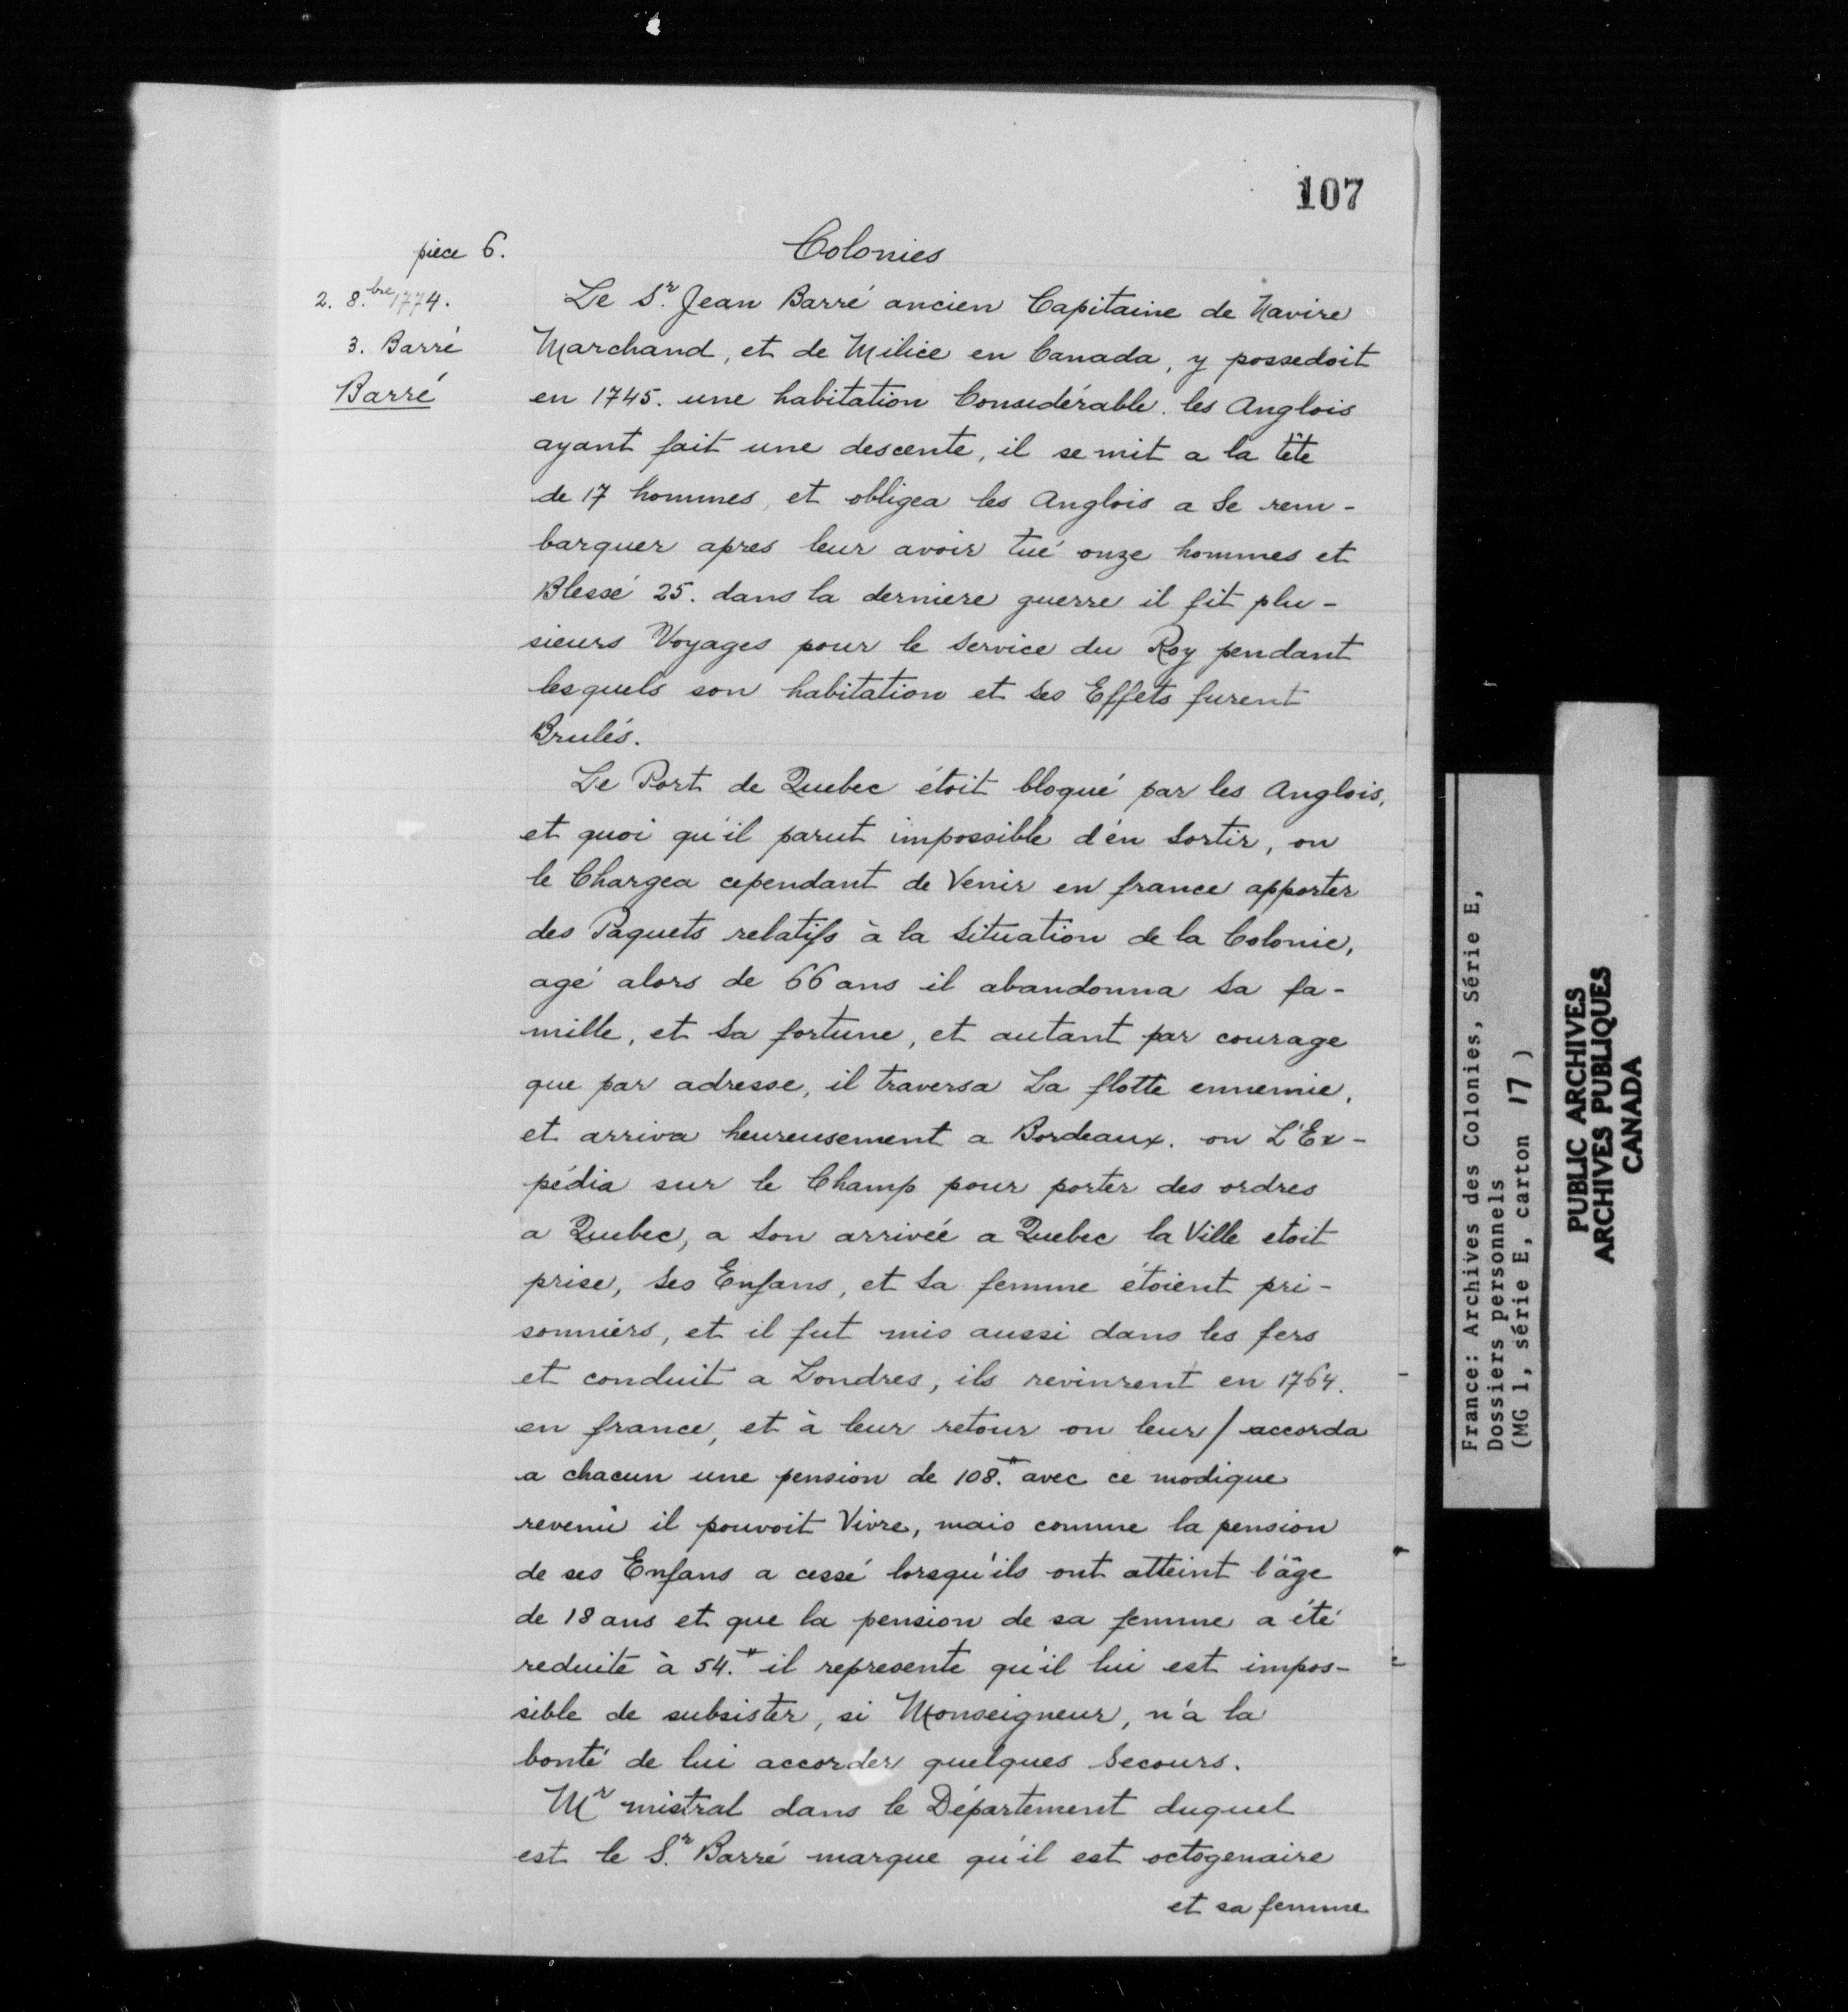 107
pièce 6.
Colonies
2. 8.bre 1774.
3. Barré
Barré
Le Sr. Jean Barré ancien Capitaine de Navire
Marchand, et de Milice en Canada, y possedoit
en 1745. une habitation Considérable. les Anglois
ayant fait une descente, il se mit a la tête
de 17 hommes, et obligea les Anglois a Se rem-
barquer apres leur avoir tué onze hommes et
Blessé 25. dans la derniere guerre il fit plu-
sieurs Voyages pour le Service du Roy pendant
lesquels son habitation et ses Effets furent
Brulés.
Le Port de Quebec étoit bloqué par les Anglois,
et quoi qu'il parut impossible d'én Sortir, on
le Chargea cependant de Venir en france apporter
des Paquets relatifs à la Situation de la Colonie,
agé alors de 66 ans il abandonna Sa fa-
mille, et Sa fortune, et autant par courage
que par adresse, il traversa La flotte ennemie,
et arriva heureusement a Bordeaux. on L'Ex-
pédia sur le Champ pour porter des ordres
a Quebec, a Son arrivée a Quebec la Ville etoit
prise, Ses Enfans, et Sa femme étoient pri-
sonniers, et il fut mis aussi dans les fers
et conduit a Londres, ils revinrent en 1764.
en france, et à leur retour on leur / accorda
a chacun une pension de 108.# avec ce modique
revenu il pouvoit Vivre, mais comme la pension
de ses Enfans a cessé lorsqu'ils ont atteint l'âge
de 18 ans et que la pension de sa femme a été
reduite à 54.# il represente qu'il lui est impos-
sible de subsister, si Monseigneur, n'a la
bonté de lui accorder quelques Secours.
Mr mistral dans le Département duquel
est le Sr. Barré marque qu'il est octogenaire
et sa femme
France: Archives des Colonies, Série E,
Dossiers personnels
(MG 1, série E, carton 17 )
PUBLIC ARCHIVES
ARCHIVES PUBLIQUES
CANADA